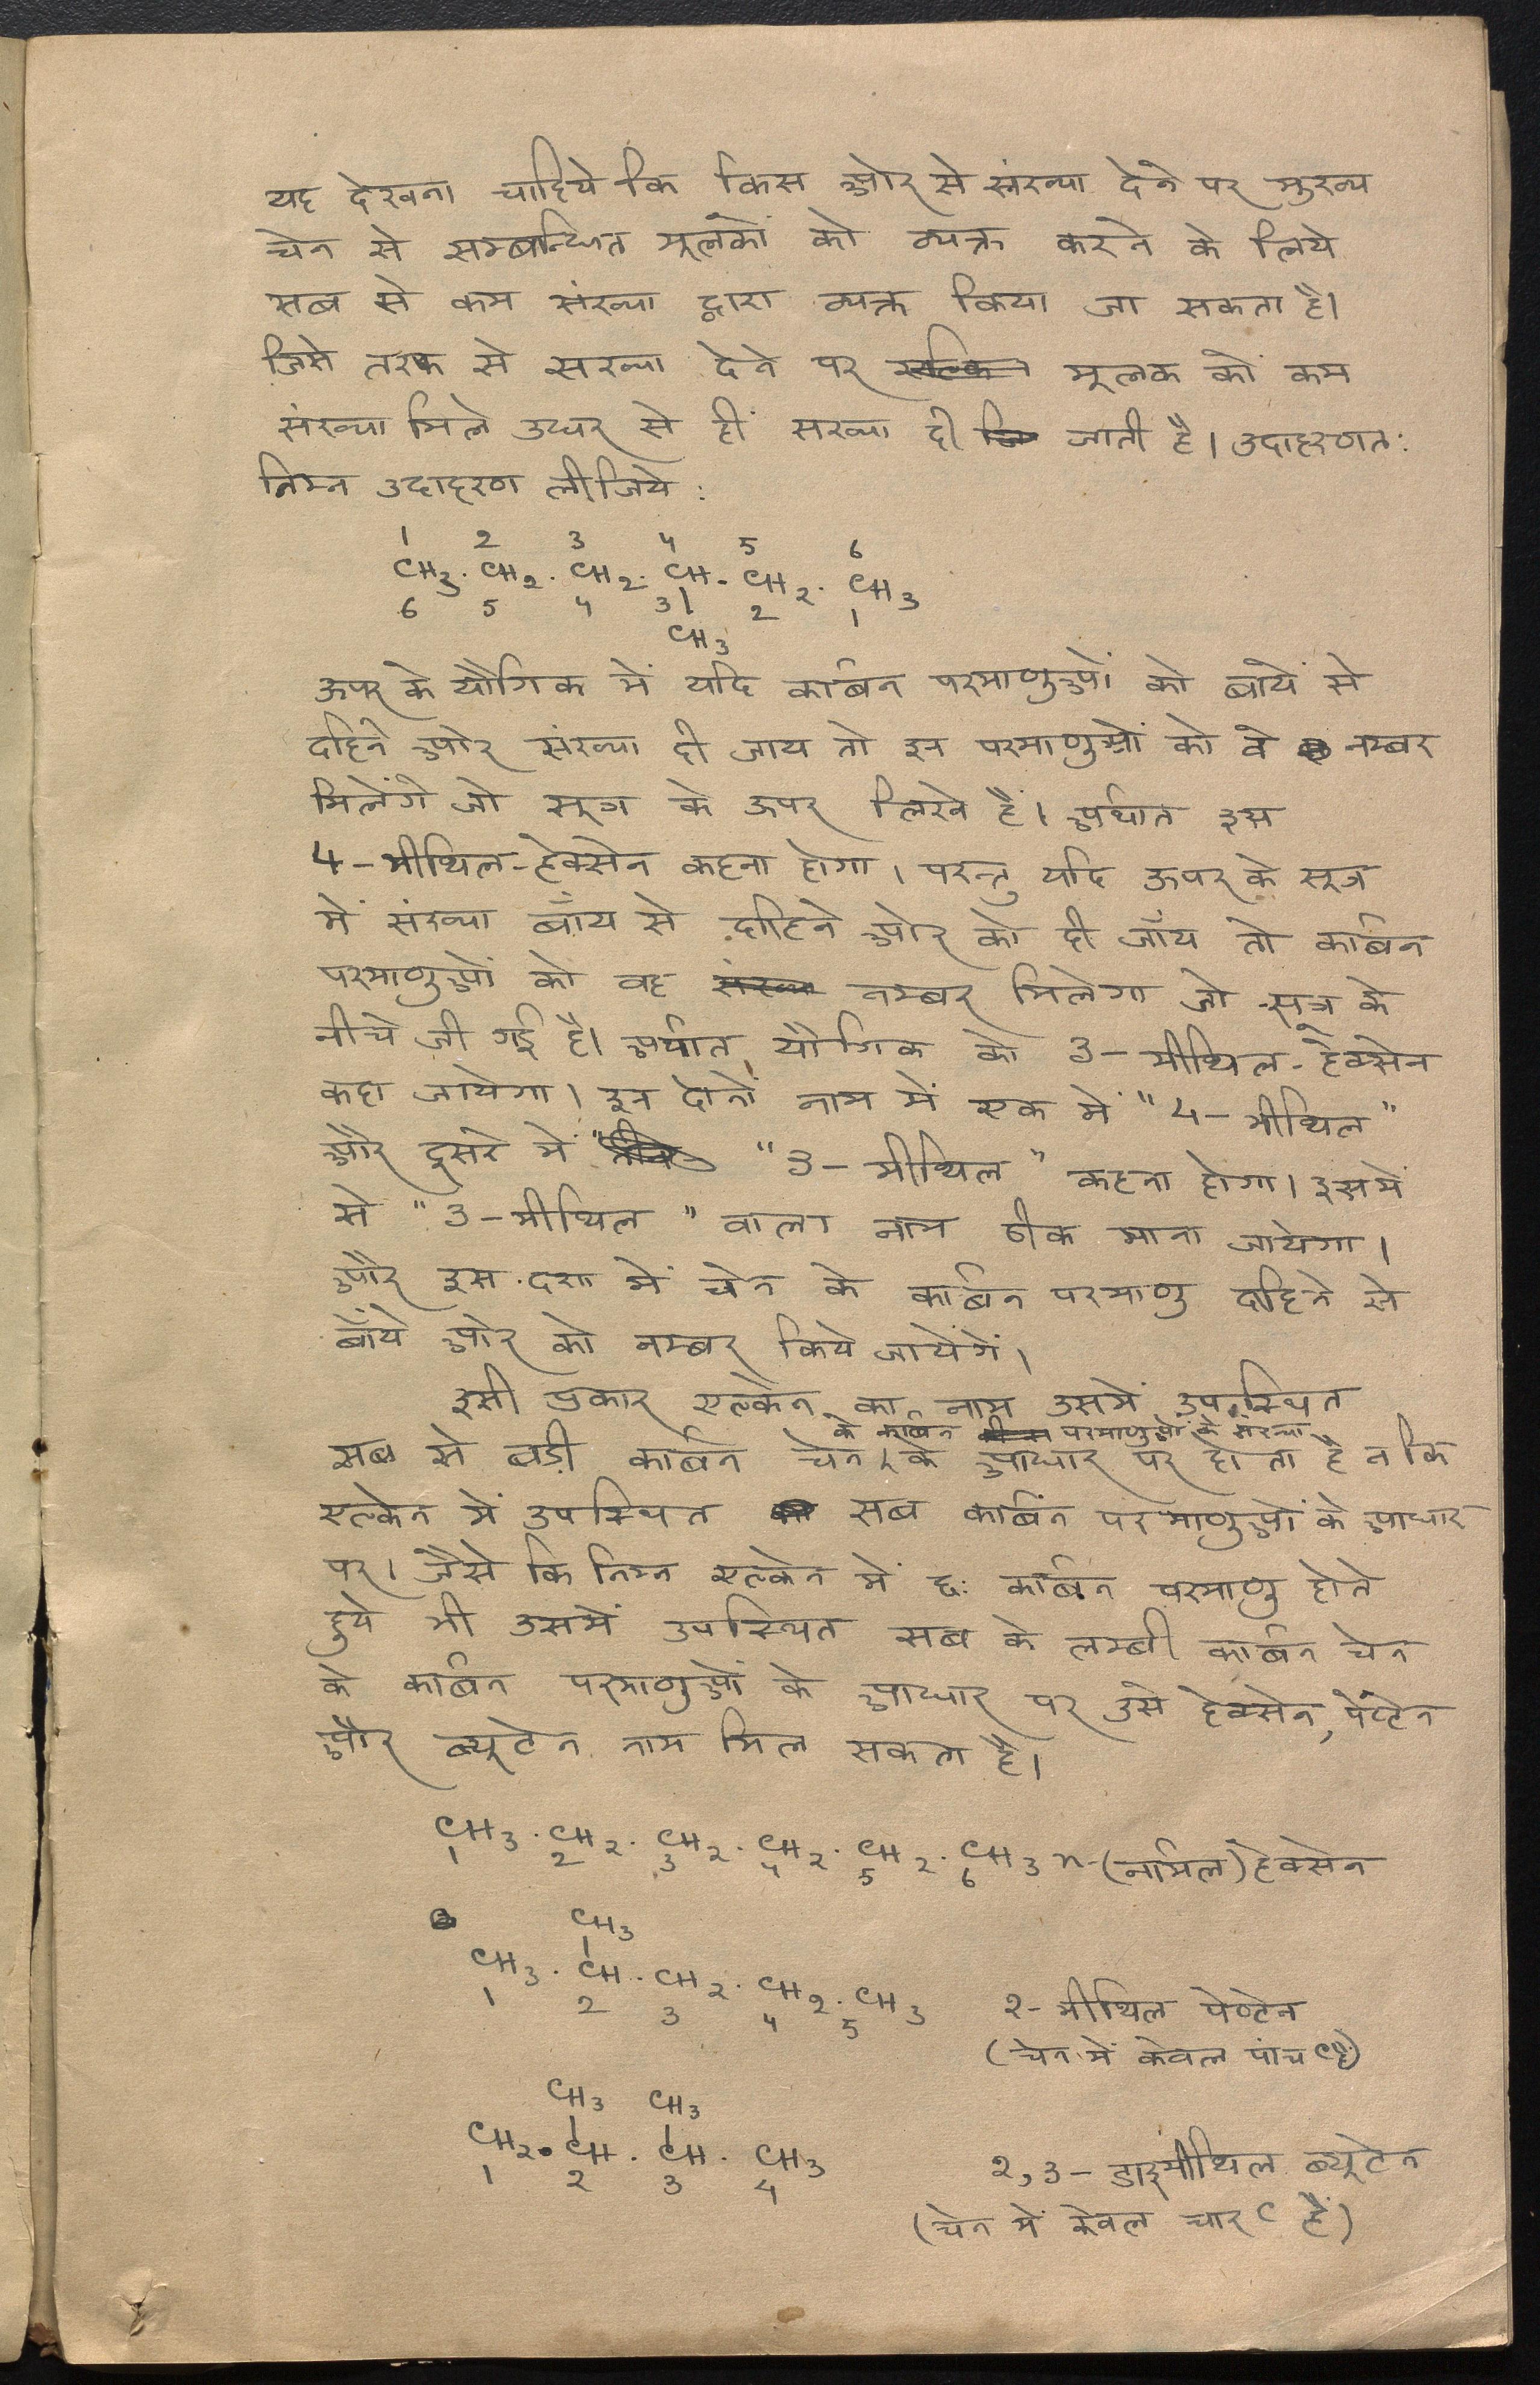 यह देखना चाहिये कि किस ओर से संख्या देने पर मुख्य
चेन से सम्बन्धित मूलकों को व्यक्त करने के लिये
सब से कम संख्या द्वारा व्यक्त किया जा सकता है।
जिसे तरफ से सख्या देने पर मूलक को कम
संख्या मिले उधर से ही सख्या दी जाती है। उदाहरणत:
निम्न उदाहरण लीजिये :
1 2 3 4 5 6
CH3. CH2. CH2. CH. CH2. CH3
6 5 4 3| 2 1
CH3
ऊपर के यौगिक में यदि कार्बन परमाणुओं को बायें से
दहिने ओर संख्या दी जाय तो इन परमाणुओं को वे नम्बर
मिलेंगे जो सूत्र के ऊपर लिखे हैं। अर्थात इस
4-मीथिल-हेक्सेन कहना होगा। परन्तु यदि ऊपर के सूत्र
में संख्या बाँय से दाहिने ओर को दी जाँय तो कार्बन
परमाणुओं को वह नम्बर मिलेगा जो सूत्र के
नीचे जी गई है। अर्थात, यौगिक को 3-मीथिल-हेक्सेन
कहा जायेगा। इन दोनों नाम में एक में "4-मीथिल"
और दूसरे में "3-मीथिल" कहना होगा। इसमें
से "3-मीथिल" वाला नाम ठीक माना जायेगा।
और इस दशा में चेन के कार्बन परमाणु दाहिने से
बाँये ओर को नम्बर किये जायेंगें।
इसी प्रकार एल्केन का नाम उसमें उपस्थित
के कार्बन परमाणुओं के संख्या
सब से बड़ी कार्बन चेन के आधार पर होता है न कि
एल्केन में उपस्थित सब कार्बन परमाणुओं के आधार
पर। जैसे कि निम्न एल्केन में छ: कार्बन परमाणु होते
हुये भी उसमें उपस्थित सब के लम्बी कार्बन चेन
के कार्बन परमाणुओं के आधार पर उसे हेक्सेन, पेंण्टेन
और ब्यूटेन नाम मिल सकता है।
CH3. CH2. CH2. CH2. CH2. CH3 n-(नार्मल) हेक्सेन
1 2 3 4 5 6
CH3
CH3. CH. CH2. CH2. CH3 2-मीथिल पेण्टेन
1 2 3 4 5
(चेन में केवल पांच C हैं)
CH3 CH3
CH2. CH. CH. CH3 2,3-डाइमीथिल ब्यूटेन
1 2 3 4
(चेन में केवल चार C हैं)